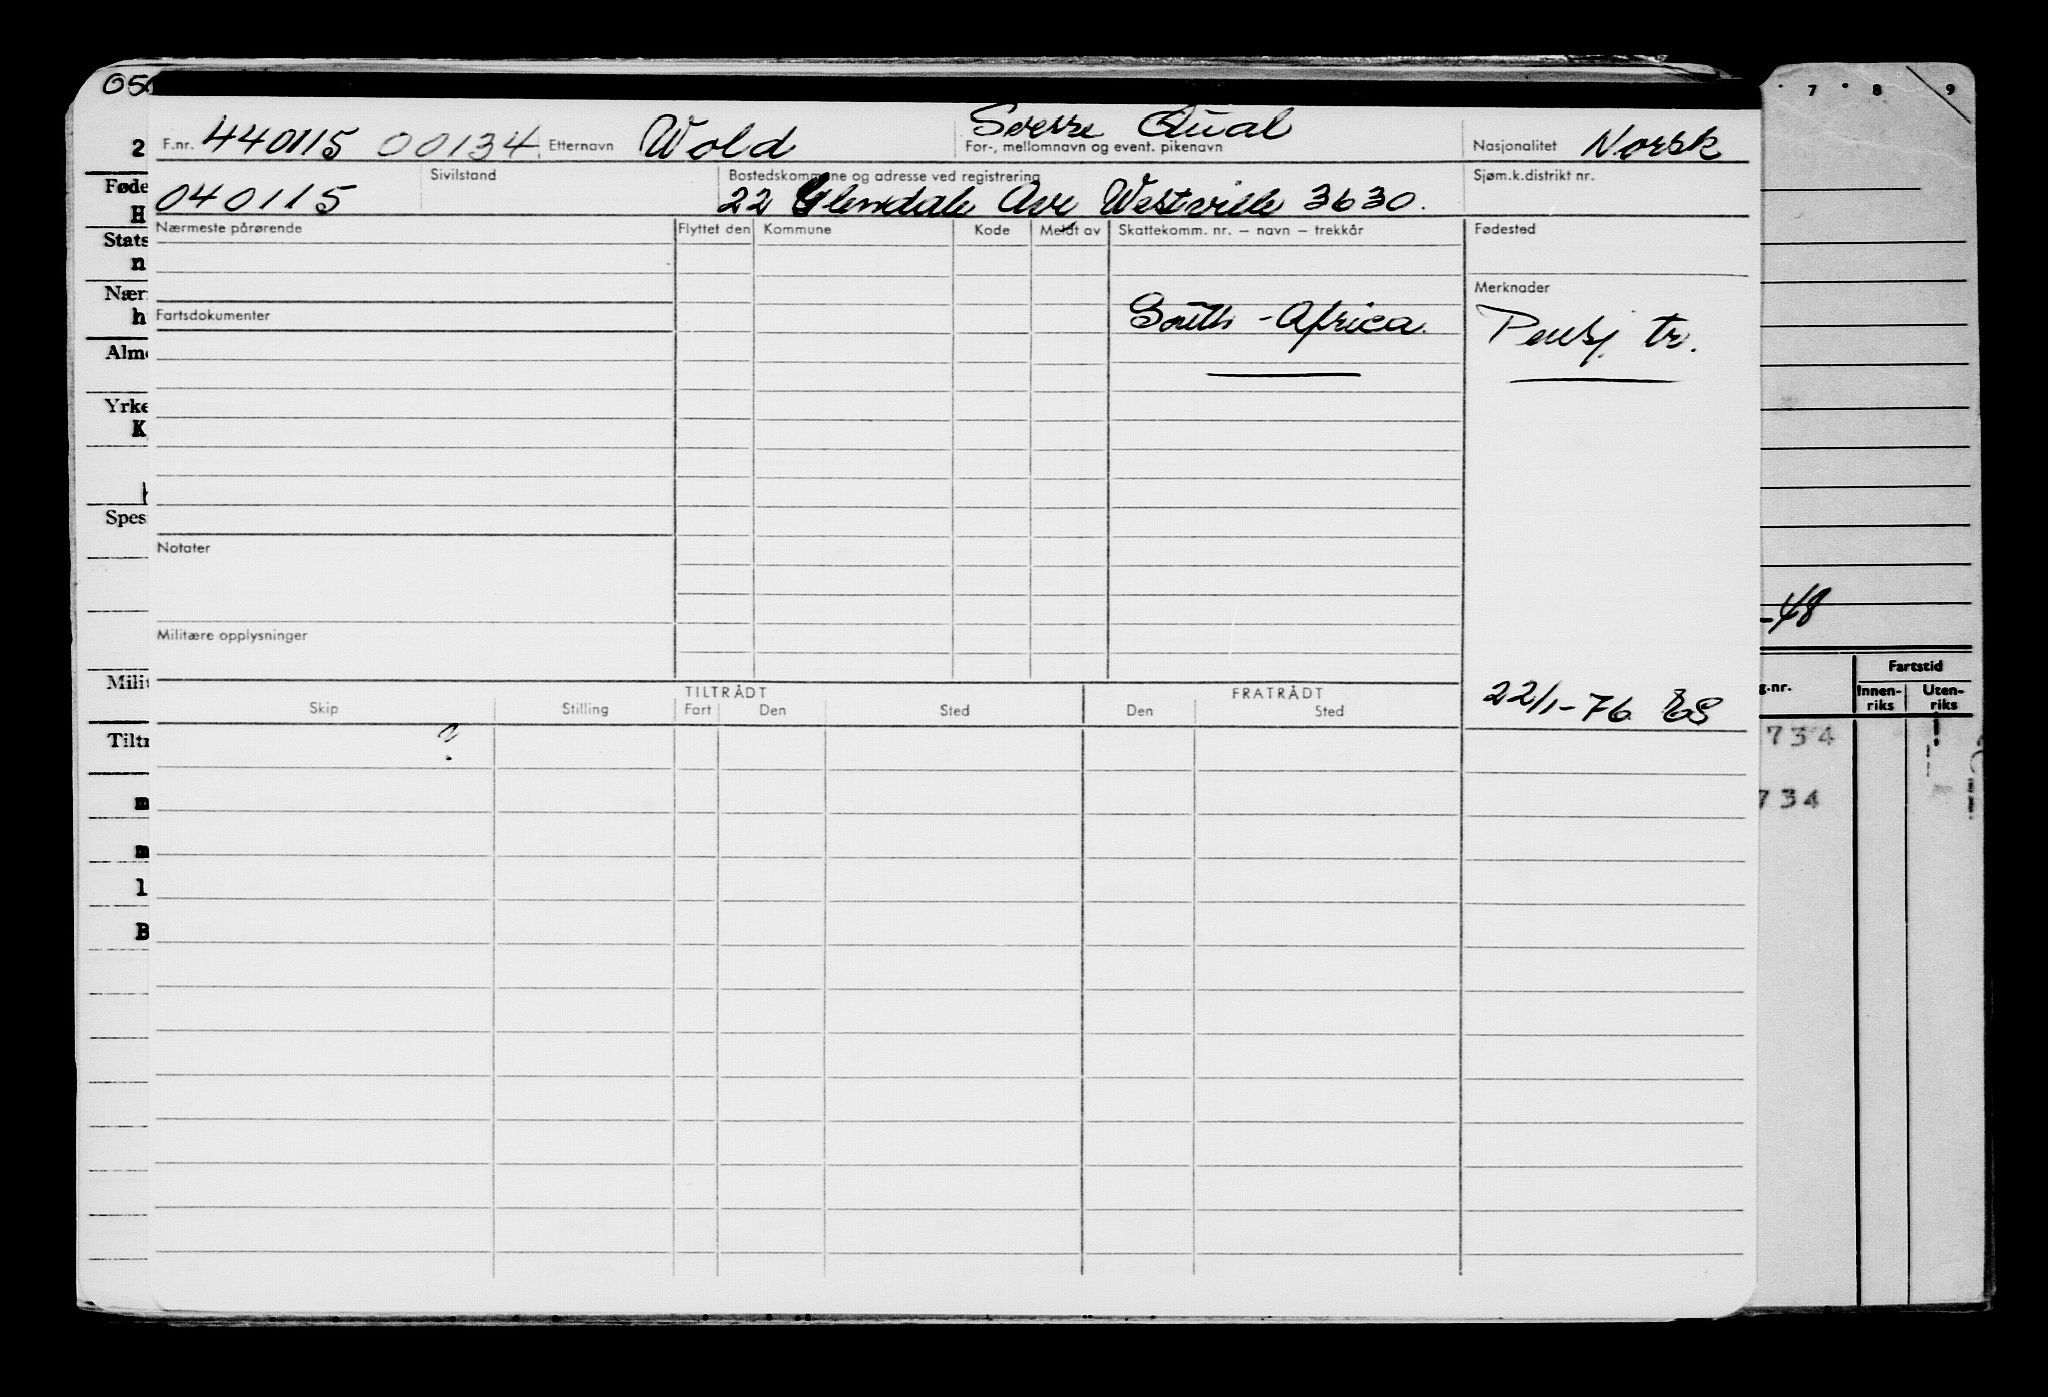 7 8 9
F.nr. 440115 00134 Etternavn Wold Sverre Qual For-, mellomnavn og event. pikenavn Nasjonalitet Norsk
2
Føde
040115 Sivilstand Bostedskommune og adresse ved registrering 22 Glendale Ave Westville 3630. Sjøm.k.distrikt nr.
H
Stats
Nærmeste pårørende Flyttet den Kommune Kode Meldt av Skattekomm. nr. – navn – trekkår Fødested
n
Nær
Merknader
h
Fartsdokumenter South-Africa. Pensj. tr.
Alm
Yrke
K
Spes
Notater
-48
Militære opplysninger
Fartstid
Milit
g.nr. Innen-riks Uten-riks
TILTRÅDT FRATRÅDT
22/1-76
Skip Stilling Fart Den Sted Den Sted
Tiltr
? 734
m
734
m
1
B